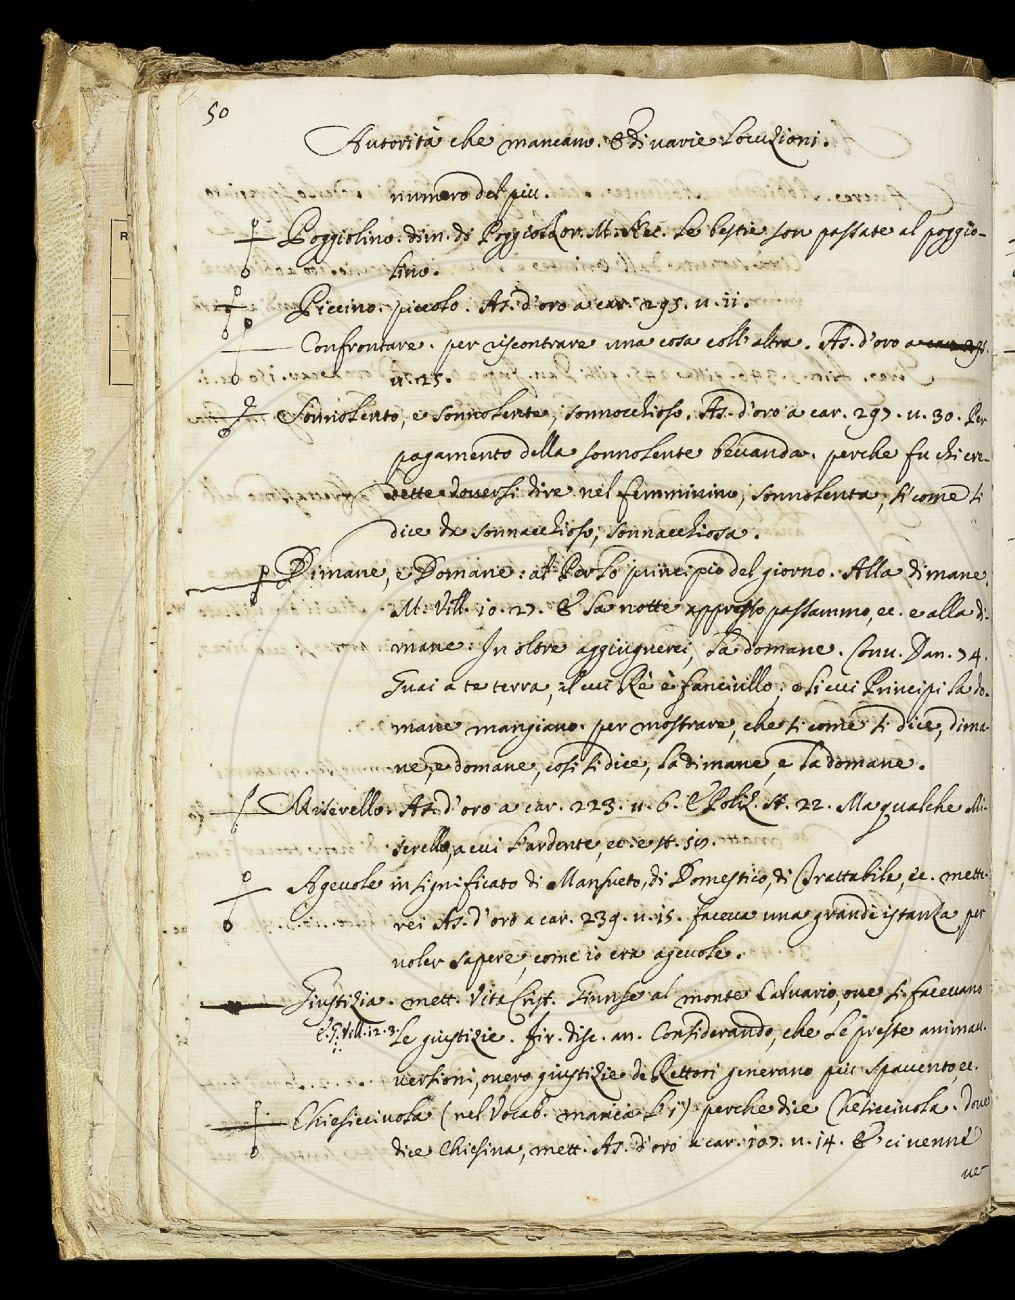 50
Autorità che mancano. E di varie Locuzioni.
numero del più.
Poggiolino. dim. di Poggio. Lor. M. Le bestie son passate al poggio-
lino.
Piccino. piccolo. As. d'oro a car. 295. u. ii.
Confrontare. per riscontrare una cosa coll'altra. As. d'oro a car. 295.
u. 25.
Sonnolento, e sonnolente, sonnocchioso. As. d'oro a car. 297. u. 30. Per
pagamento della sonnolente bevanda. perche fu chi cre-
dette doversi dire nel femminino, sonnolenta, si come si
dice da sonnacchioso, sonnacchiosa.
Dimane, e Domane: at. Per Lo principio del giorno. Alla dimane
M. Vill. 10. 27. E La notte appresso passammo, ec. e alla di-
mane: In oltre aggiugnerei, La domane. Conv. Dan. 74.
Guai a te terra, il cui Rè è fanciullo; e li cui Principi la do-
mane mangiano. per mostrare, che si come si dice, dima-
ne, e domane, così si dice, La dimane, e la domane.
Miserello. As. d'oro a car. 223. u. 6. E Poliz. st. 22. Ma qualche Mi-
serello, a cui l'ardente, ec. e st. 59.
Agevole in significato di Mansueto, di Domestico, di Trattabile, ec. mett-
rei As. d'oro a car. 239. u. 15. faceva una grande istanza, per
voler sapere, come io era agevole.
Giustizia. mett. Vita Crist. Giunse al monte Calvario, ove si facevano
E G. Vill. 12. 3. Le giustizie. Fir. disc. an. Considerando, che le preste animau-
versioni, overo giustizie de Rettori generano più spavento, ec.
Chiesicciuola (nel Vocab. manca L'i) perche dice Chesicciuola. Dove
dice Chiesina, mett. As. d'oro a car. 107. u. 14. E ci venne
ne